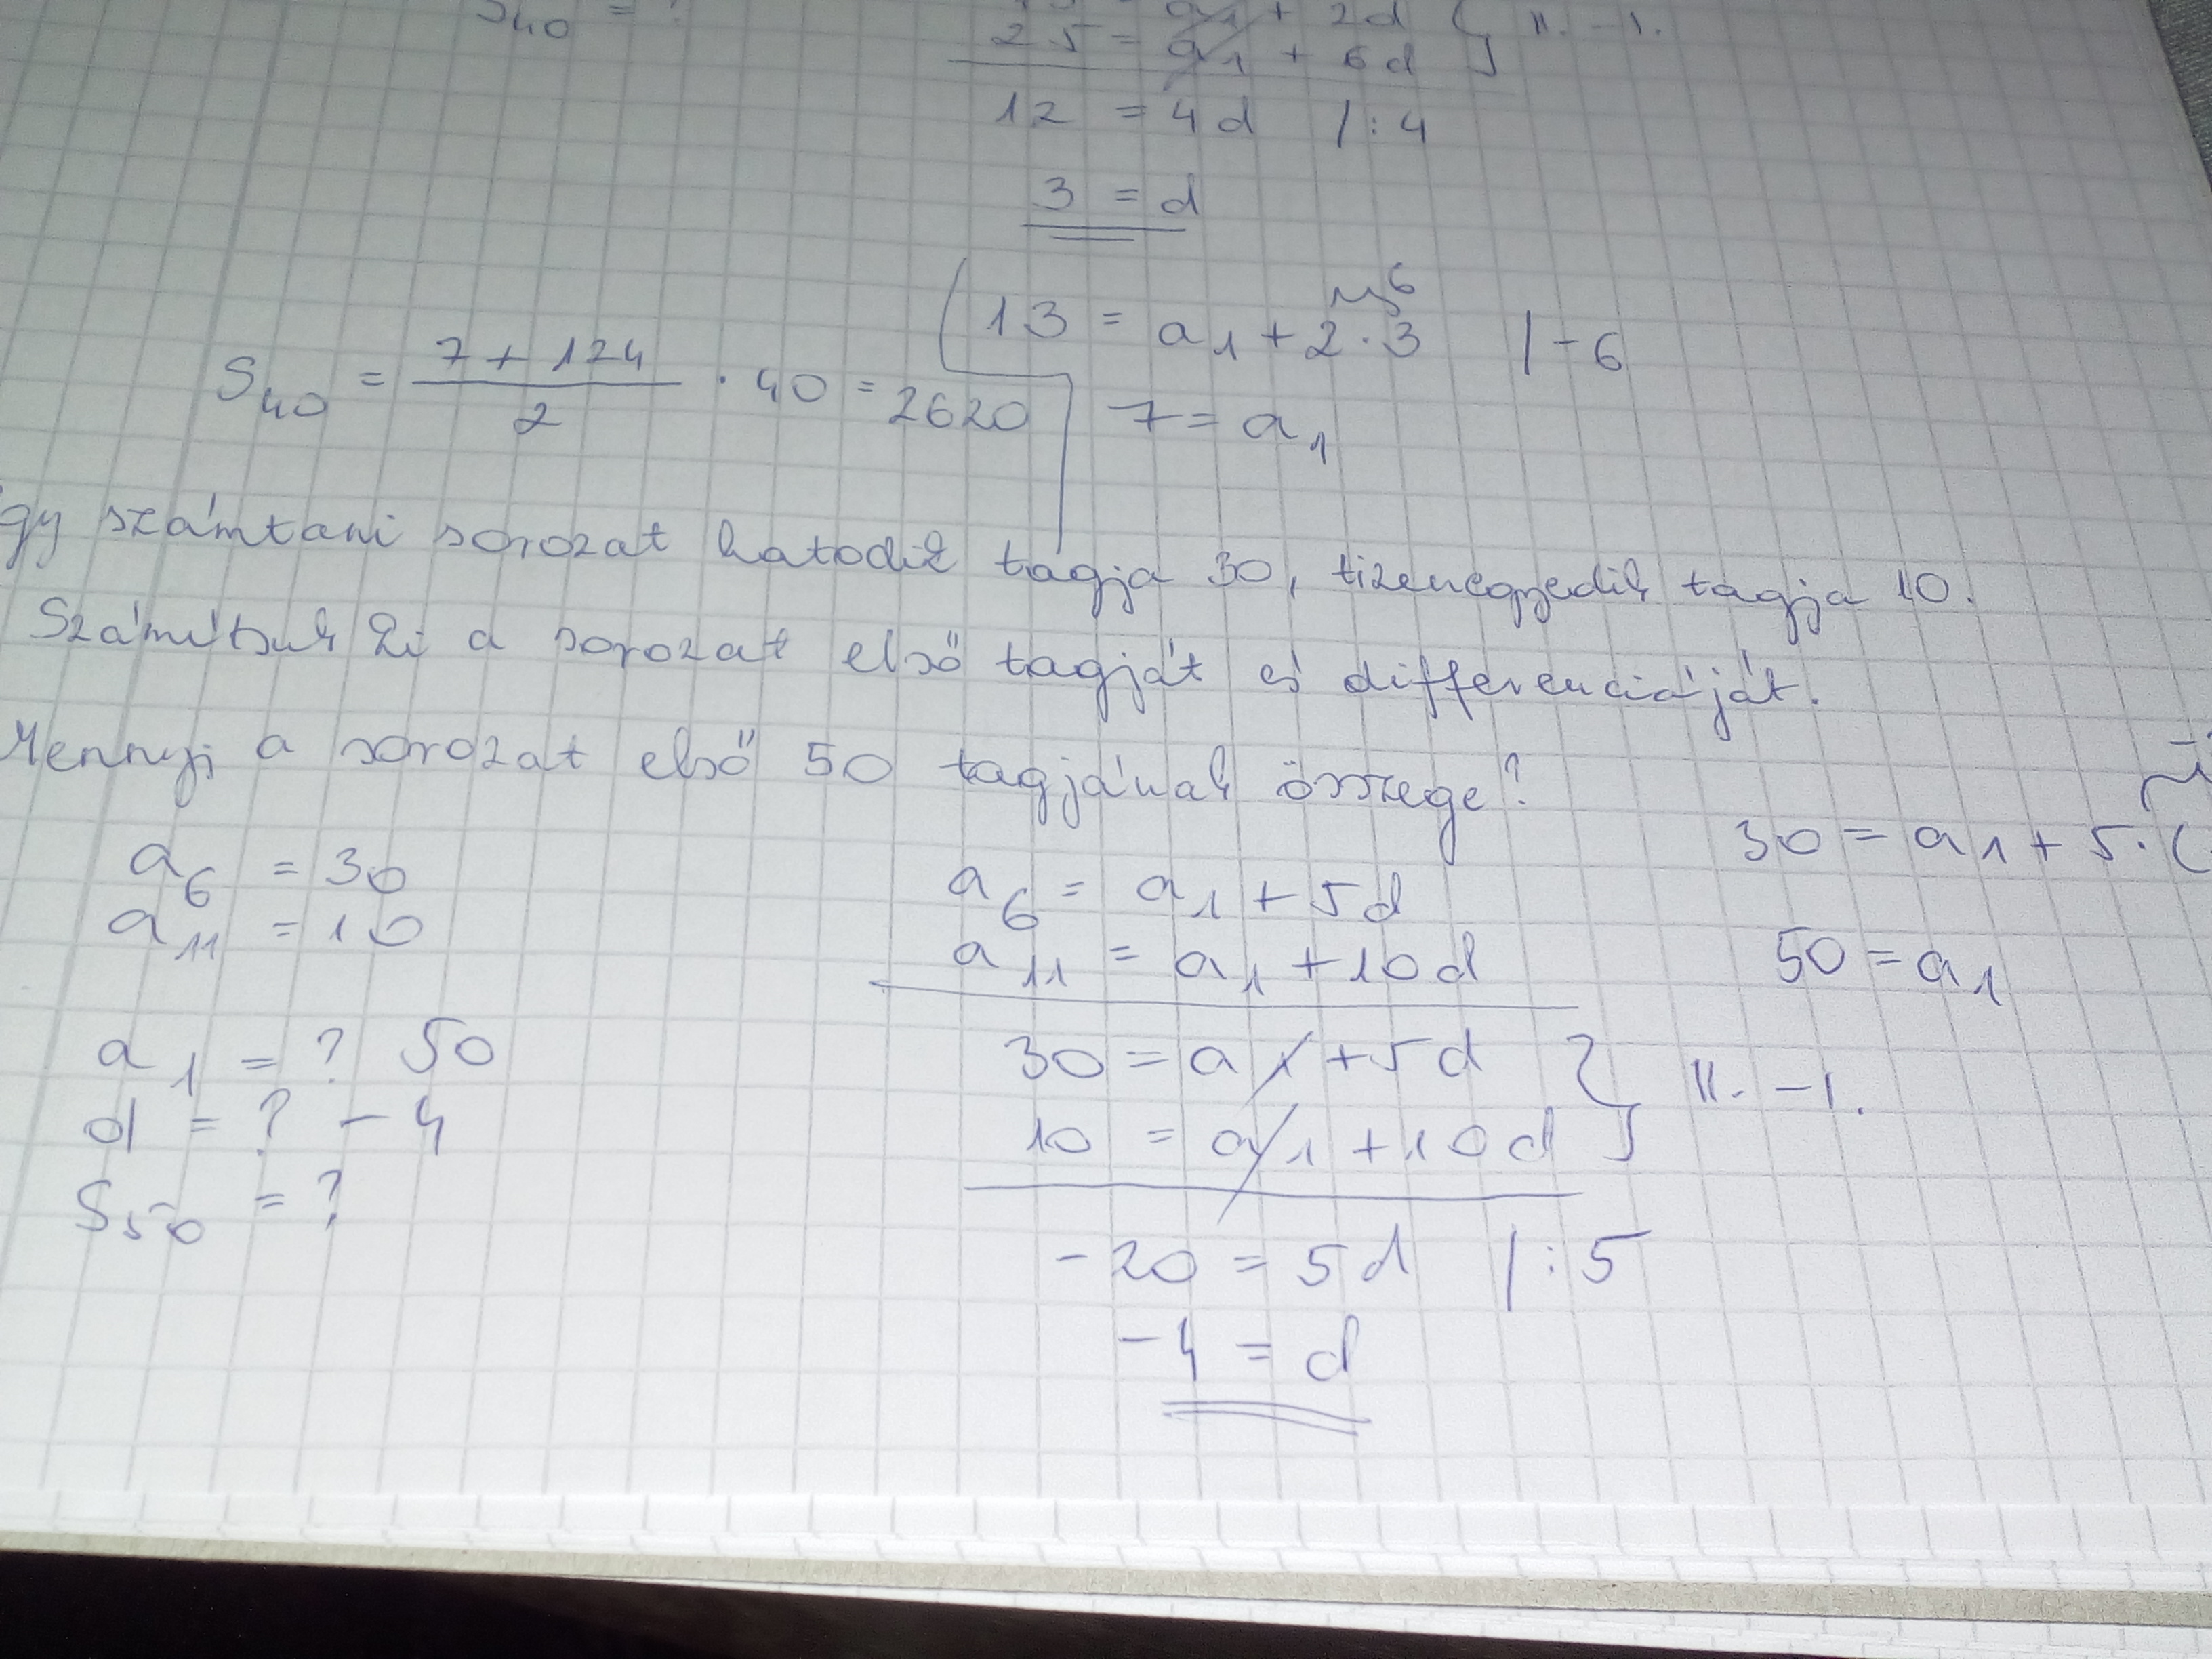 S40 = ?
a1 + 2d } II. -I.
25 = a1 + 6d
12 = 4d /:4
3 = d
6
13 = a1 + 2·3 /-6
S40 = (7 + 124)/2 · 40 = 2620
7 = a1
gy számtani sorozat hatodik tagja 30, tizenegyedik tagja 10.
Számítsuk ki a sorozat első tagját és differenciáját.
Mennyi a sorozat első 50 tagjának összege?
a6 = 30
a11 = 10
a1 = ? 50
d = ? -4
S50 = ?
a6 = a1 + 5d
a11 = a1 + 10d
30 = a1 + 5d } II. -I.
10 = a1 + 10d
-20 = 5d /:5
-4 = d
30 = a1 + 5·(
50 = a1